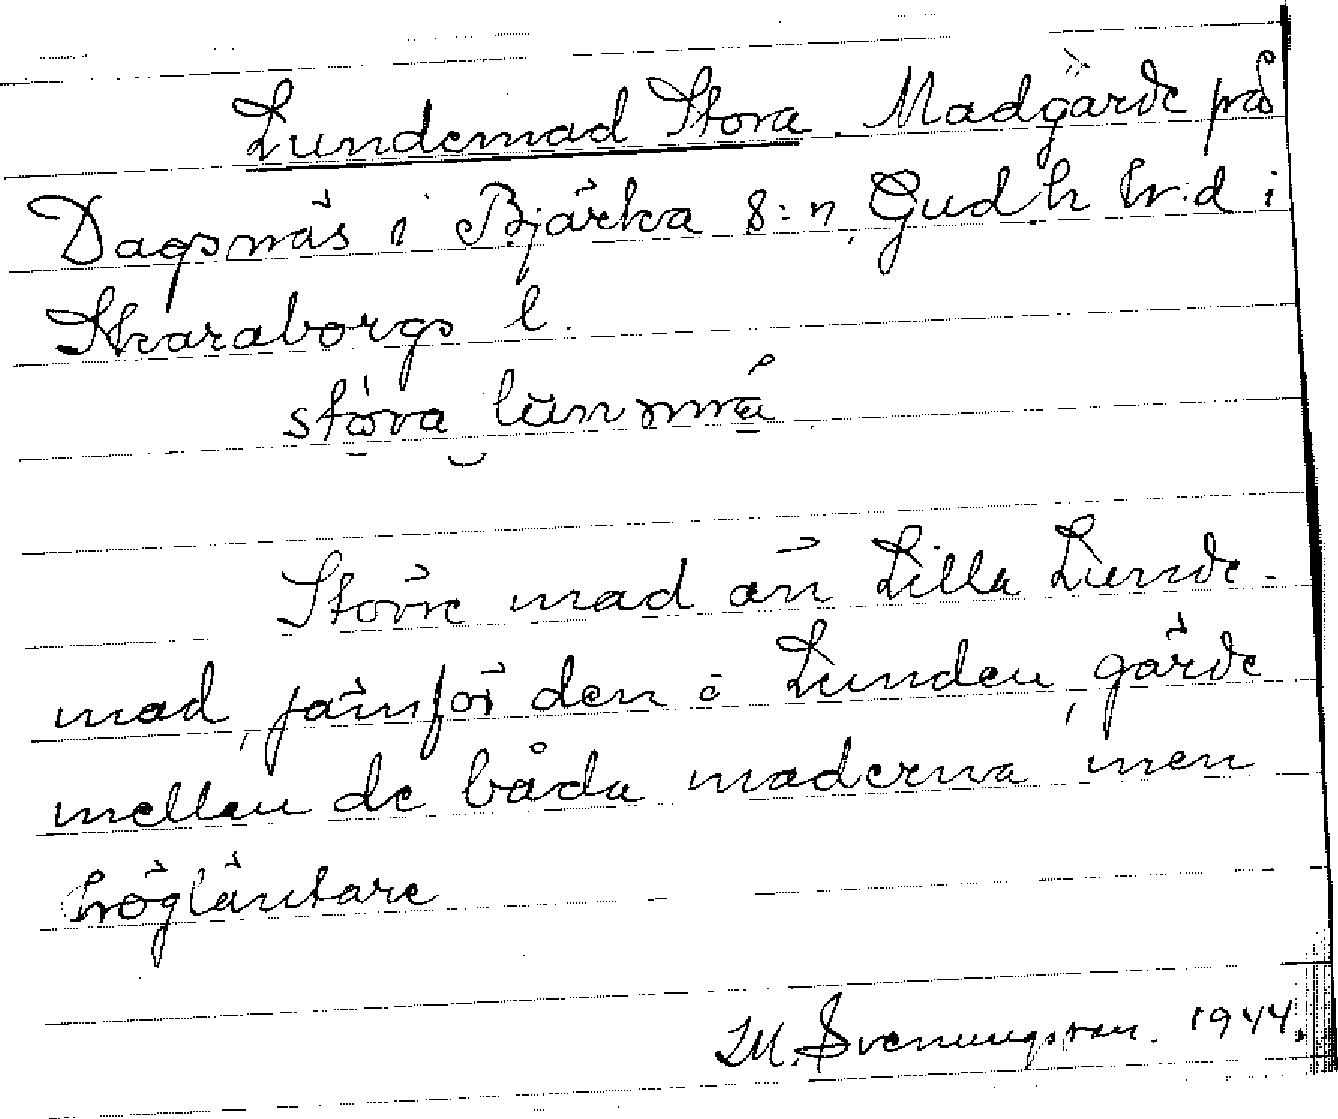 Lundemad Stora. Madgärde på
Dagsnäs i Bjärka s:n, Gudh hr.d i
Skaraborgs l.
stora lunnma
Större mad än Lilla Lunde-
mad, jämför den o Lunden, gärde
mellan de båda maderna men
högläntare
M. Svenungsson. 1944.